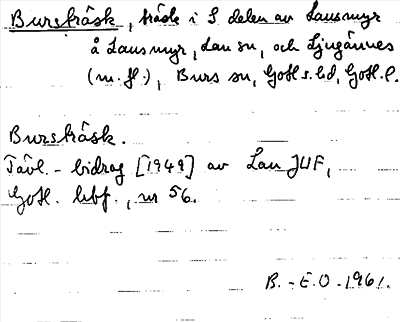 Burskräsk, träsk i S. delen av Lausmyr
å Lausmyr, Lau sn, och Ljugännes
(m. fl.), Burs sn, Gotl. s. hd, Gotl. l.
Burskräsk.
Tävl. - bidrag [1949] av Lau JUF,
Gotl. hbf., nr 56.
B. - E. O. 1961.